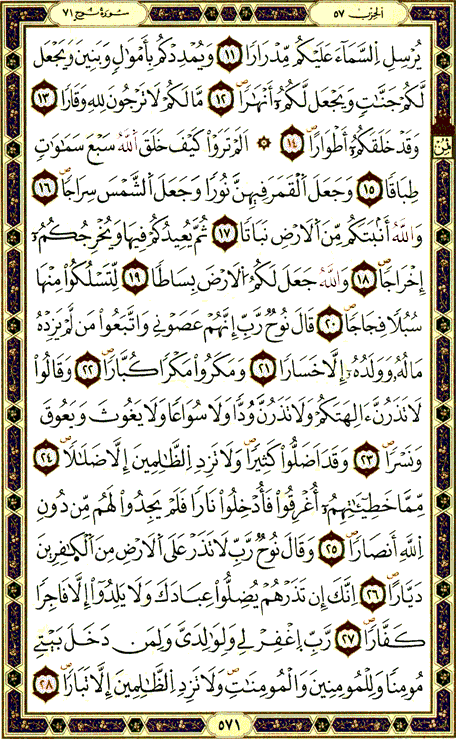 سورة نوح ٧١ الحزب ٥٧
يُرْسِلِ اِ۬لسَّمَآءَ عَلَيْكُم مِّدْرَارٗا ١١ وَيُمْدِدْكُم بِأَمْوَٰلٖ وَبَنِينَ وَيَجْعَل
لَّكُمْ جَنَّٰتٖ وَيَجْعَل لَّكُمُۥٓ أَنْهَٰرٗا ١٢ مَّا لَكُمْ لَا تَرْجُونَ لِلهِ وَقَارٗا ١٣
وَقَدْ خَلَقَكُمُۥٓ أَطْوَارًا ١٤ ۞ اَلَمْ تَرَوْاْ كَيْفَ خَلَقَ اَ۬للَّهُ سَبْعَ سَمَٰوَٰتٖ
طِبَاقٗا ١٥ وَجَعَلَ اَ۬لْقَمَرَ فِيهِنَّ نُورٗا وَجَعَلَ اَ۬لشَّمْسَ سِرَاجٗا ١٦
وَاللَّهُ أَنۢبَتَكُم مِّنَ اَ۬لَارْضِ نَبَاتٗا ١٧ ثُمَّ يُعِيدُكُمْ فِيهَا وَيُخْرِجُكُمُۥٓ
إِخْرَاجٗا ١٨ وَاللَّهُ جَعَلَ لَكُمُ اُ۬لَارْضَ بِسَاطٗا ١٩ لِّتَسْلُكُواْ مِنْهَا
سُبُلٗا فِجَاجٗا ٢٠ قَالَ نُوحٞ رَّبِّ إِنَّهُمْ عَصَوْنِے وَاتَّبَعُواْ مَن لَّمْ يَزِدْهُ
مَالُهُۥ وَوَلَدُهُۥٓ إِلَّا خَسَارٗا ٢١ وَمَكَرُواْ مَكْرٗا كُبَّارٗا ٢٢ وَقَالُواْ
لَا تَذَرُنَّ ءَالِهَتَكُمْ وَلَا تَذَرُنَّ وُدّٗا وَلَا سُوَاعٗا وَلَا يَغُوثَ وَيَعُوقَ
وَنَسْرٗا ٢٣ وَقَدَ اَضَلُّواْ كَثِيرٗا وَلَا تَزِدِ اِ۬لظَّٰلِمِينَ إِلَّا ضَلَٰلٗا ٢٤
مِّمَّا خَطِيٓـَٰٔتِهِمُۥٓ أُغْرِقُواْ فَأُدْخِلُواْ نَارٗا فَلَمْ يَجِدُواْ لَهُم مِّن دُونِ
اِ۬للَّهِ أَنصَارٗا ٢٥ وَقَالَ نُوحٞ رَّبِّ لَا تَذَرْ عَلَى اَ۬لَارْضِ مِنَ اَ۬لْكٰ۪فِرِينَ
دَيَّارًا ٢٦ اِنَّكَ إِن تَذَرْهُمْ يُضِلُّواْ عِبَادَكَ وَلَا يَلِدُوٓاْ إِلَّا فَاجِرٗا
كَفَّارٗا ٢٧ رَّبِّ اِ۪غْفِرْ لِے وَلِوَٰلِدَيَّ وَلِمَن دَخَلَ بَيْتِے
مُومِنٗا وَلِلْمُومِنِينَ وَالْمُومِنَٰتِ وَلَا تَزِدِ اِ۬لظَّٰلِمِينَ إِلَّا تَبَارَۢا ٢٨
٥٧١